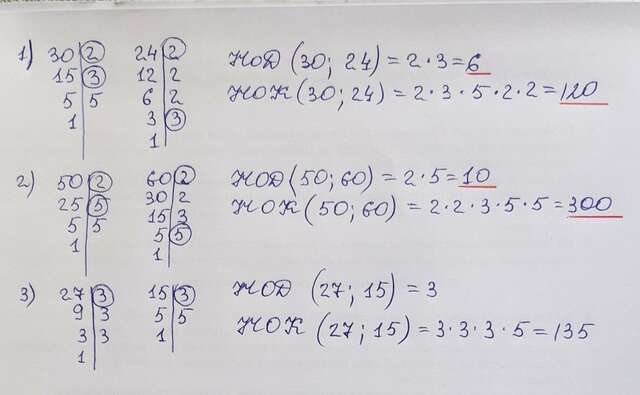 1) 30 | 2 24 | 2 НОД (30; 24) = 2 · 3 = 6
15 | 3 12 | 2 НОК (30; 24) = 2 · 3 · 5 · 2 · 2 = 120
5 | 5 6 | 2
1 | 3 | 3
1 |
2) 50 | 2 60 | 2 НОД (50; 60) = 2 · 5 = 10
25 | 5 30 | 2 НОК (50; 60) = 2 · 2 · 3 · 5 · 5 = 300
5 | 5 15 | 3
1 | 5 | 5
1 |
3) 27 | 3 15 | 3 НОД (27; 15) = 3
9 | 3 5 | 5 НОК (27; 15) = 3 · 3 · 3 · 5 = 135
3 | 3 1 |
1 |